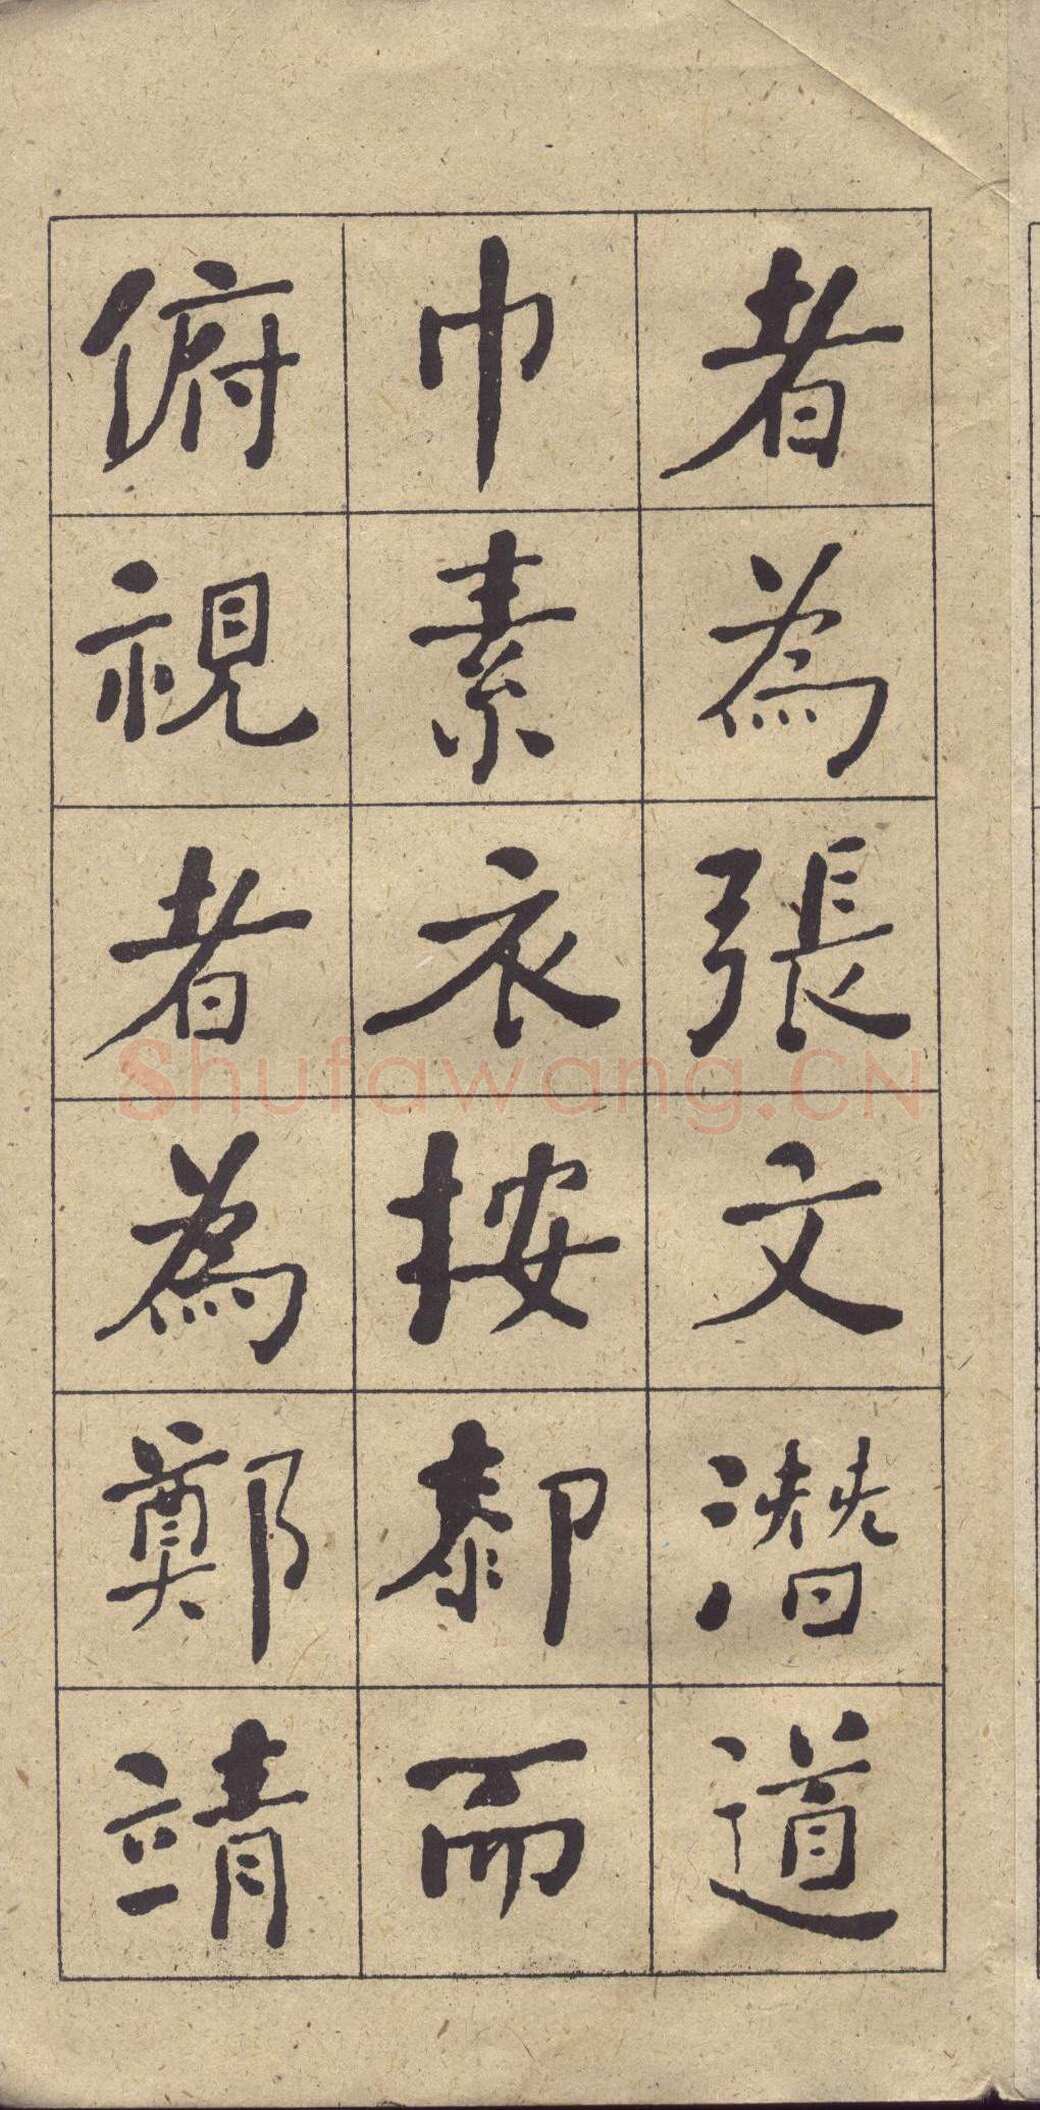 者為張文潛道
巾素衣按𨞪而
俯視者為鄭靖
Shufawang.CN